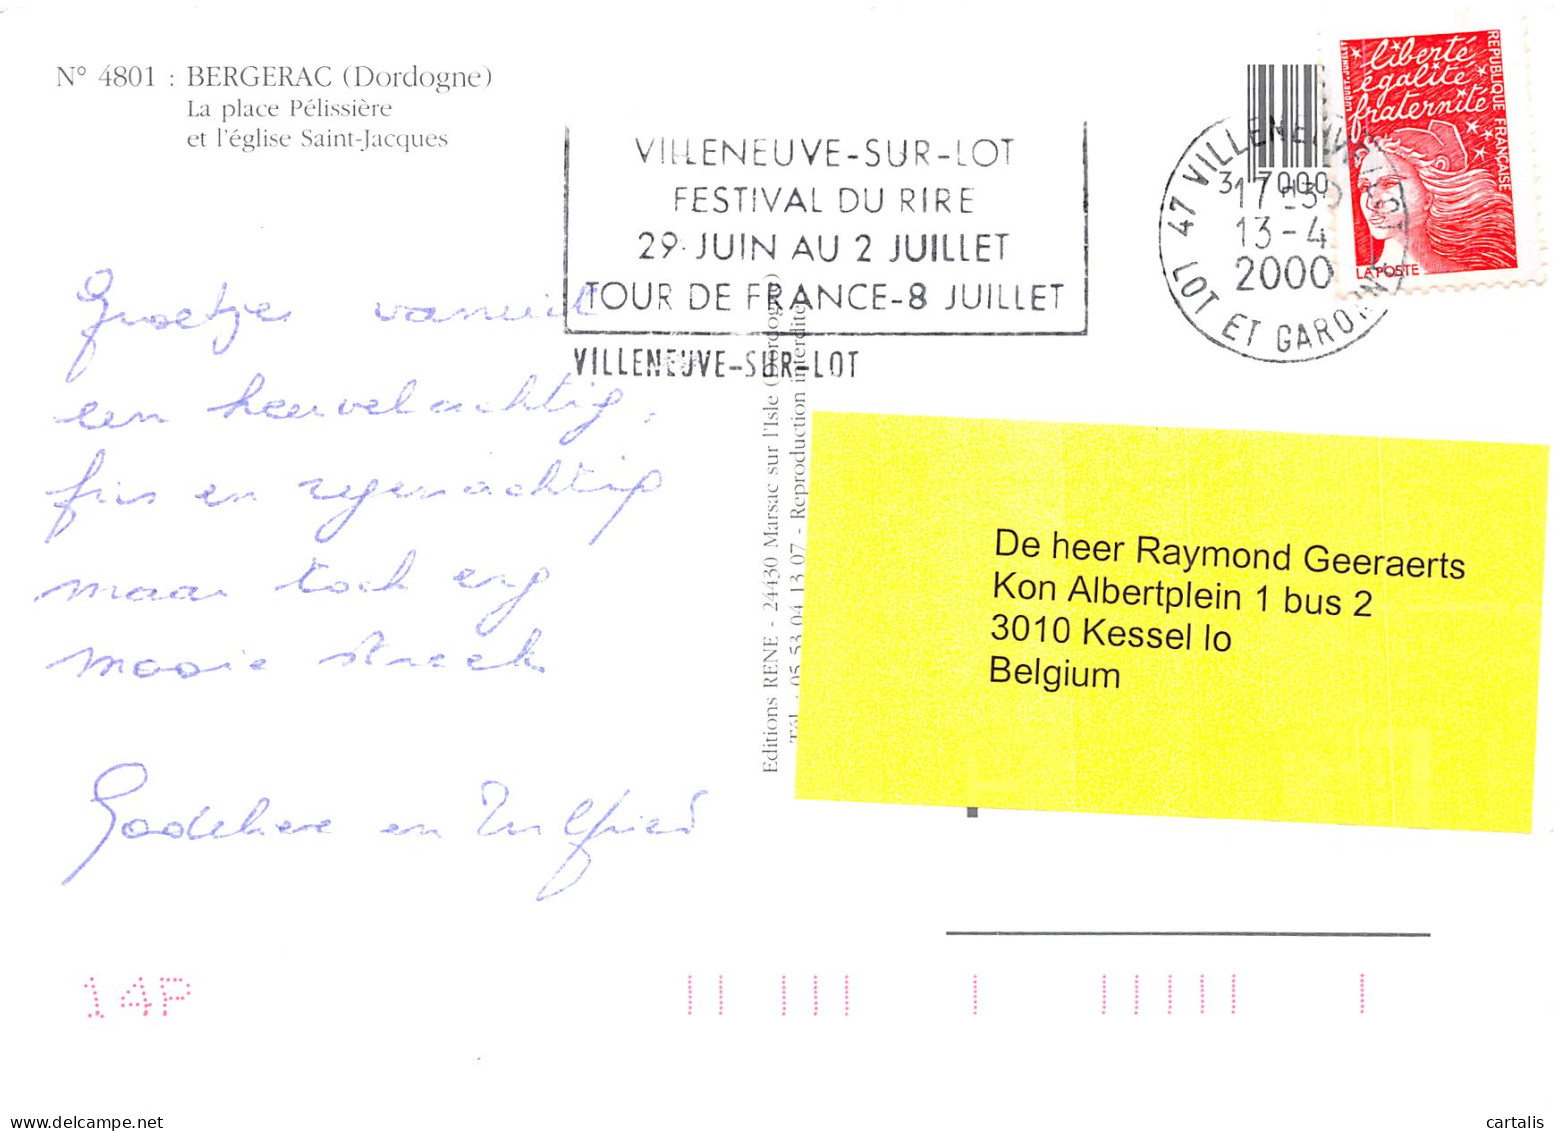 N° 4801 : BERGERAC (Dordogne)
La place Pélissière
et l'église Saint-Jacques
VILLENEUVE-SUR-LOT
FESTIVAL DU RIRE
29 JUIN AU 2 JUILLET
TOUR DE FRANCE-8 JUILLET
VILLENEUVE-SUR-LOT
47 VILLENEUVE
17H30
13-4
2000
LOT ET GARONNE
liberté
égalité
fraternité
REPUBLIQUE FRANÇAISE
LA POSTE
Groetjes vanuit
een heuvelachtig,
fris en regenachtig
maar toch erg
mooie streek
Godelieve en Wilfried
Editions RENE - 24430 Marsac sur l'Isle (Dordogne)
Tél. : 05 53 04 13 07 - Reproduction interdite
De heer Raymond Geeraerts
Kon Albertplein 1 bus 2
3010 Kessel lo
Belgium
14P
www.cartalis.com
cartalis